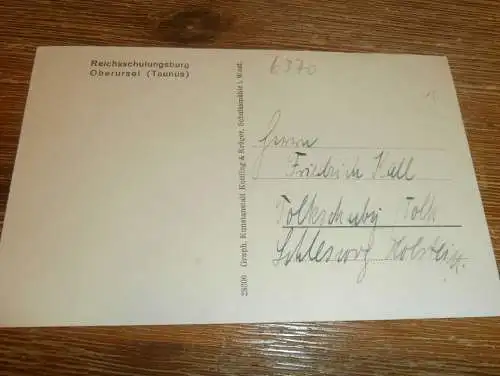 Reichsschulungsburg
Oberursel (Taunus)
28306 Graph. Kunstanstalt Kettling & Krüger, Schalksmühle i. Westf.
6370
Herrn
Friedrich Kall
Tolkschuby Tolk
Schleswig Holstein